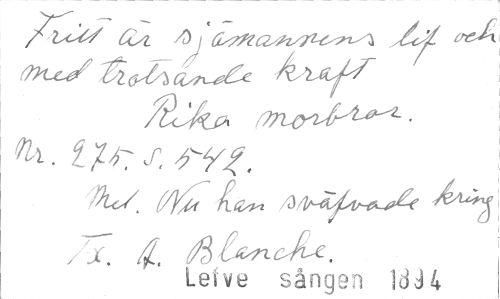 Fritt är sjömannens lif och
med trotsande kraft
Rika morbror.
Nr. 275. S. 542.
Mel. Nu han sväfvade kring
Tx. A. Blanche.
Lefve sången 1894